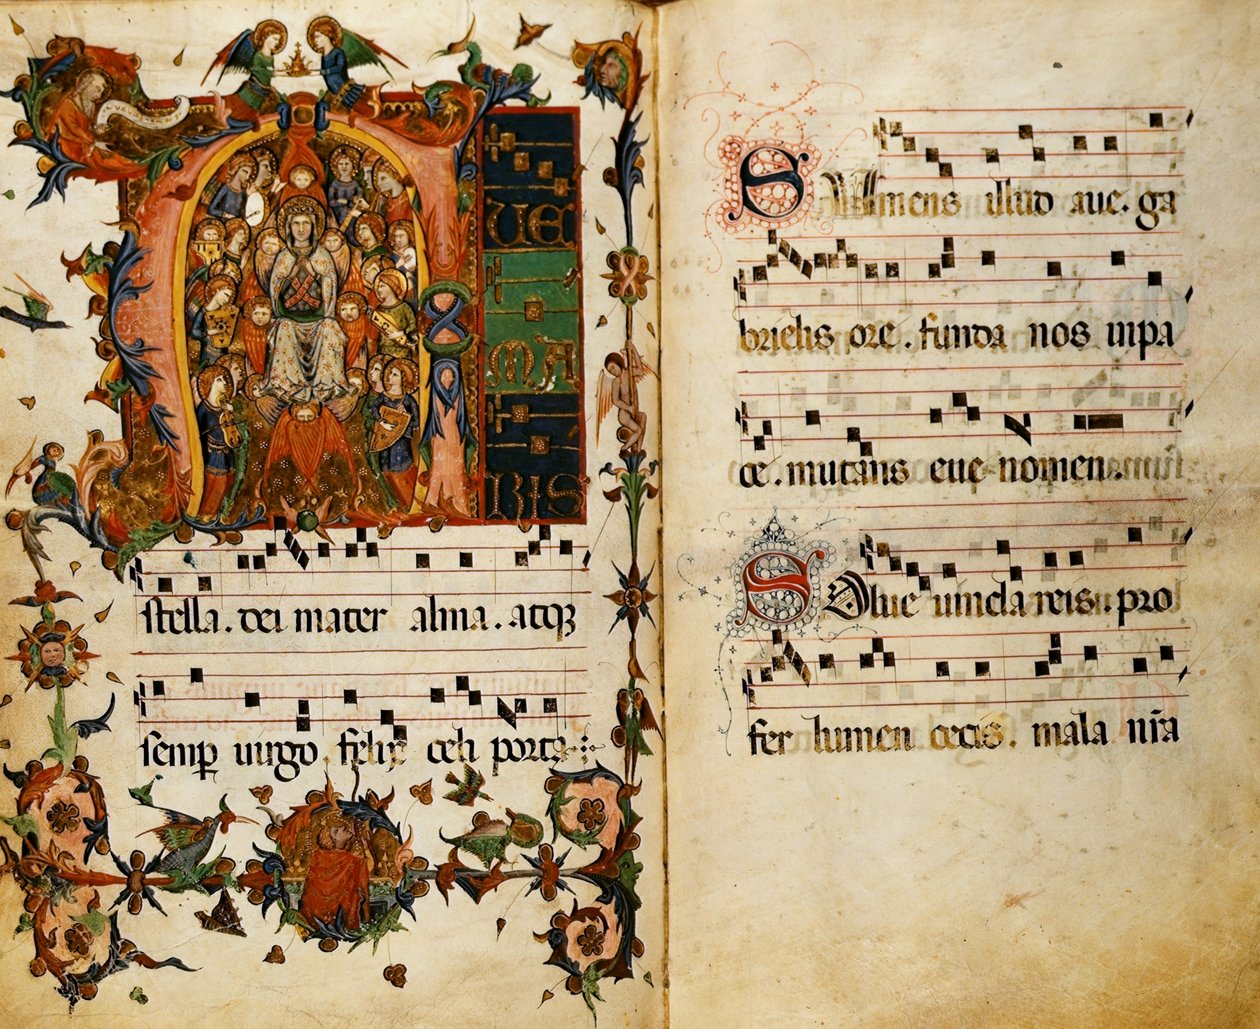 A UE
MA
RIS
stella. dei mater alma. atqꝫ
semꝑ uirgo. felix celi porta.
SUmens illud aue. ga
brielis ore. funda nos inpa
ce. mutans eue nomen.
SOlue uincla reis. pro
fer lumen cecis. mala nr̄a